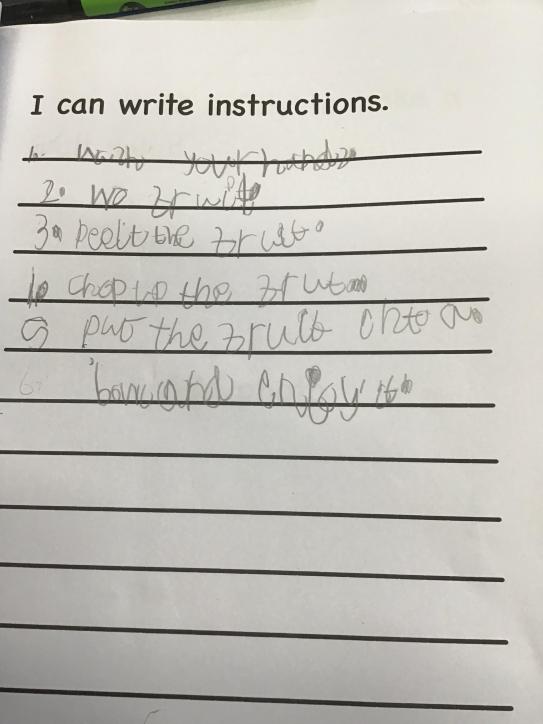 I can write instructions.
1. wash your hands.
2. wo fruit
3. peelt the fruit.
chop up the frut
5 put the fruit onto a
6. bowl and enjoy it.